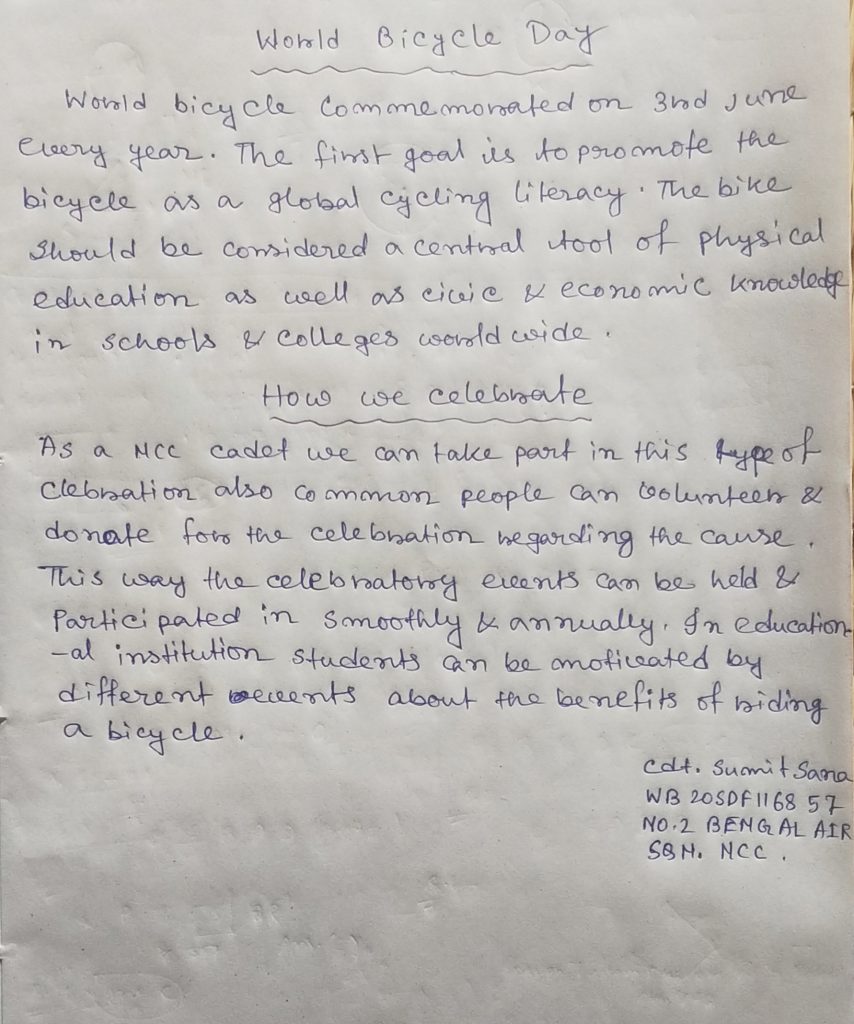 World Bicycle Day
World bicycle Commemorated on 3rd June
every year. The first goal is to promote the
bicycle as a global cycling literacy. The bike
should be considered a central tool of physical
education as well as civic & economic knowledge
in schools & colleges world wide.
How we celebrate
As a NCC cadet we can take part in this type of
Clebration also common people can volunteer &
donate for the celebration regarding the cause.
This way the celebratory events can be held &
Participated in smoothly & annually. In education-
-al institution students can be motivated by
different events about the benefits of riding
a bicycle.
Cdt. Sumit Sana
WB 20SDF1168 57
NO.2 BENGAL AIR
SQN. NCC.